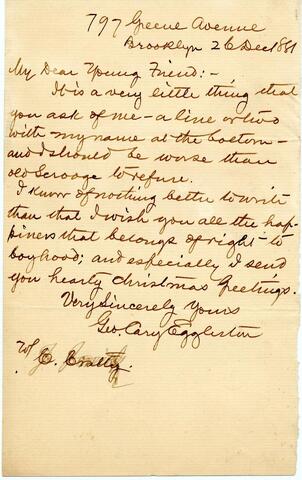 797 Greene Avenue
Brooklyn 26 Dec 1881
My Dear Young Friend:-
It is a very little thing that
you ask of me - a line or two
with my name at the bottom -
and I should be worse than
old Scrooge to refuse.
I know of nothing better to write
than that I wish you all the hap-
piness that belongs of right to
boyhood; and especially I send
you hearty Christmas greetings.
Very Sincerely Yours
Geo. Cary Eggleston
C.